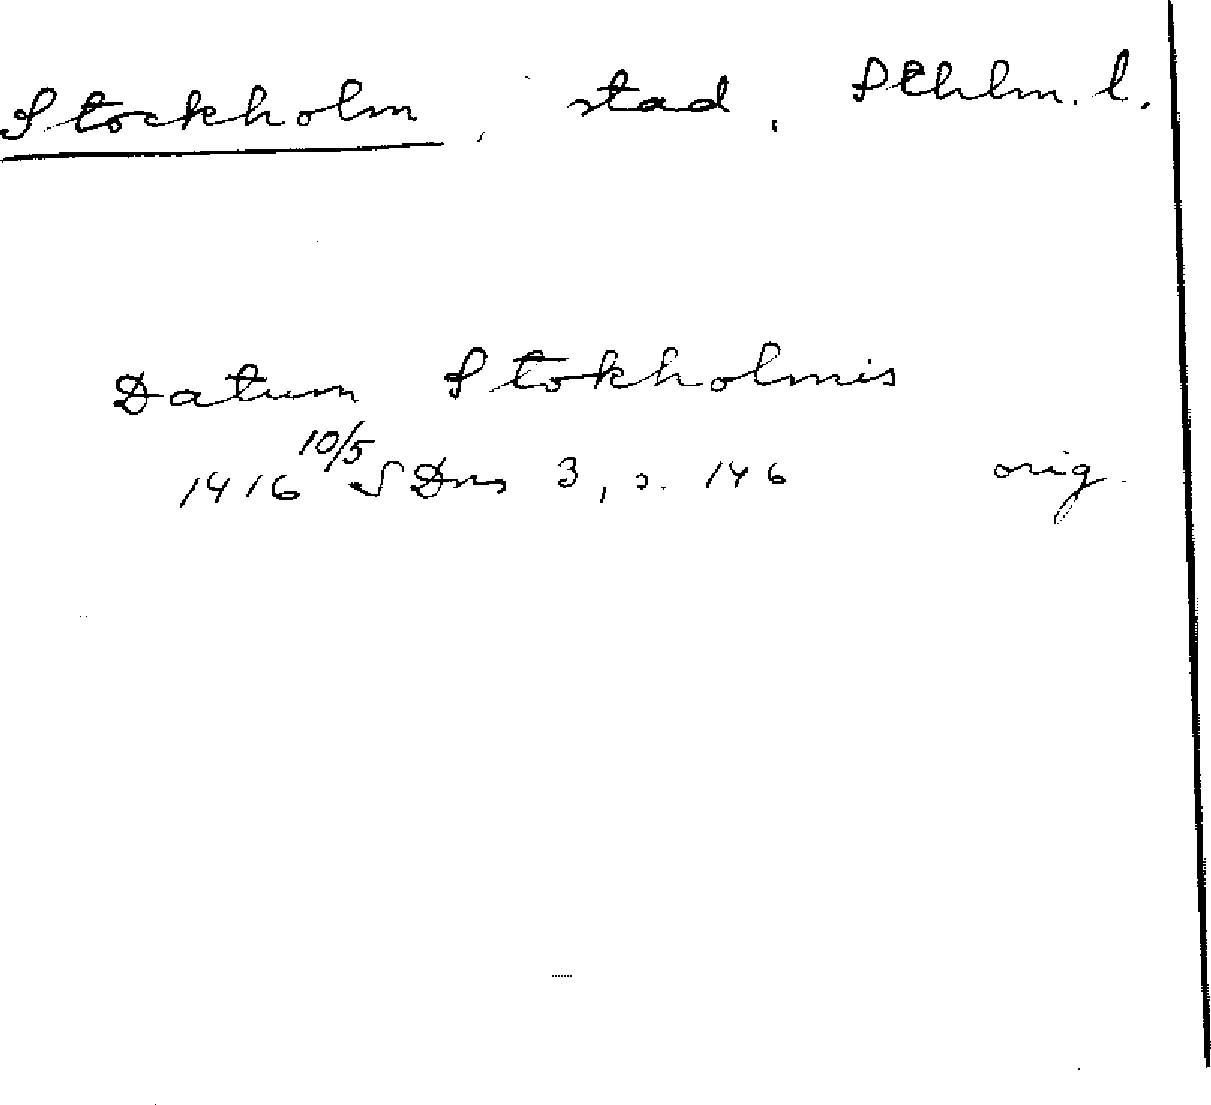 Stockholm, stad, Sthlm. l.
Datum Stokholmis
1416 10/5 SDns 3, s. 146 orig.